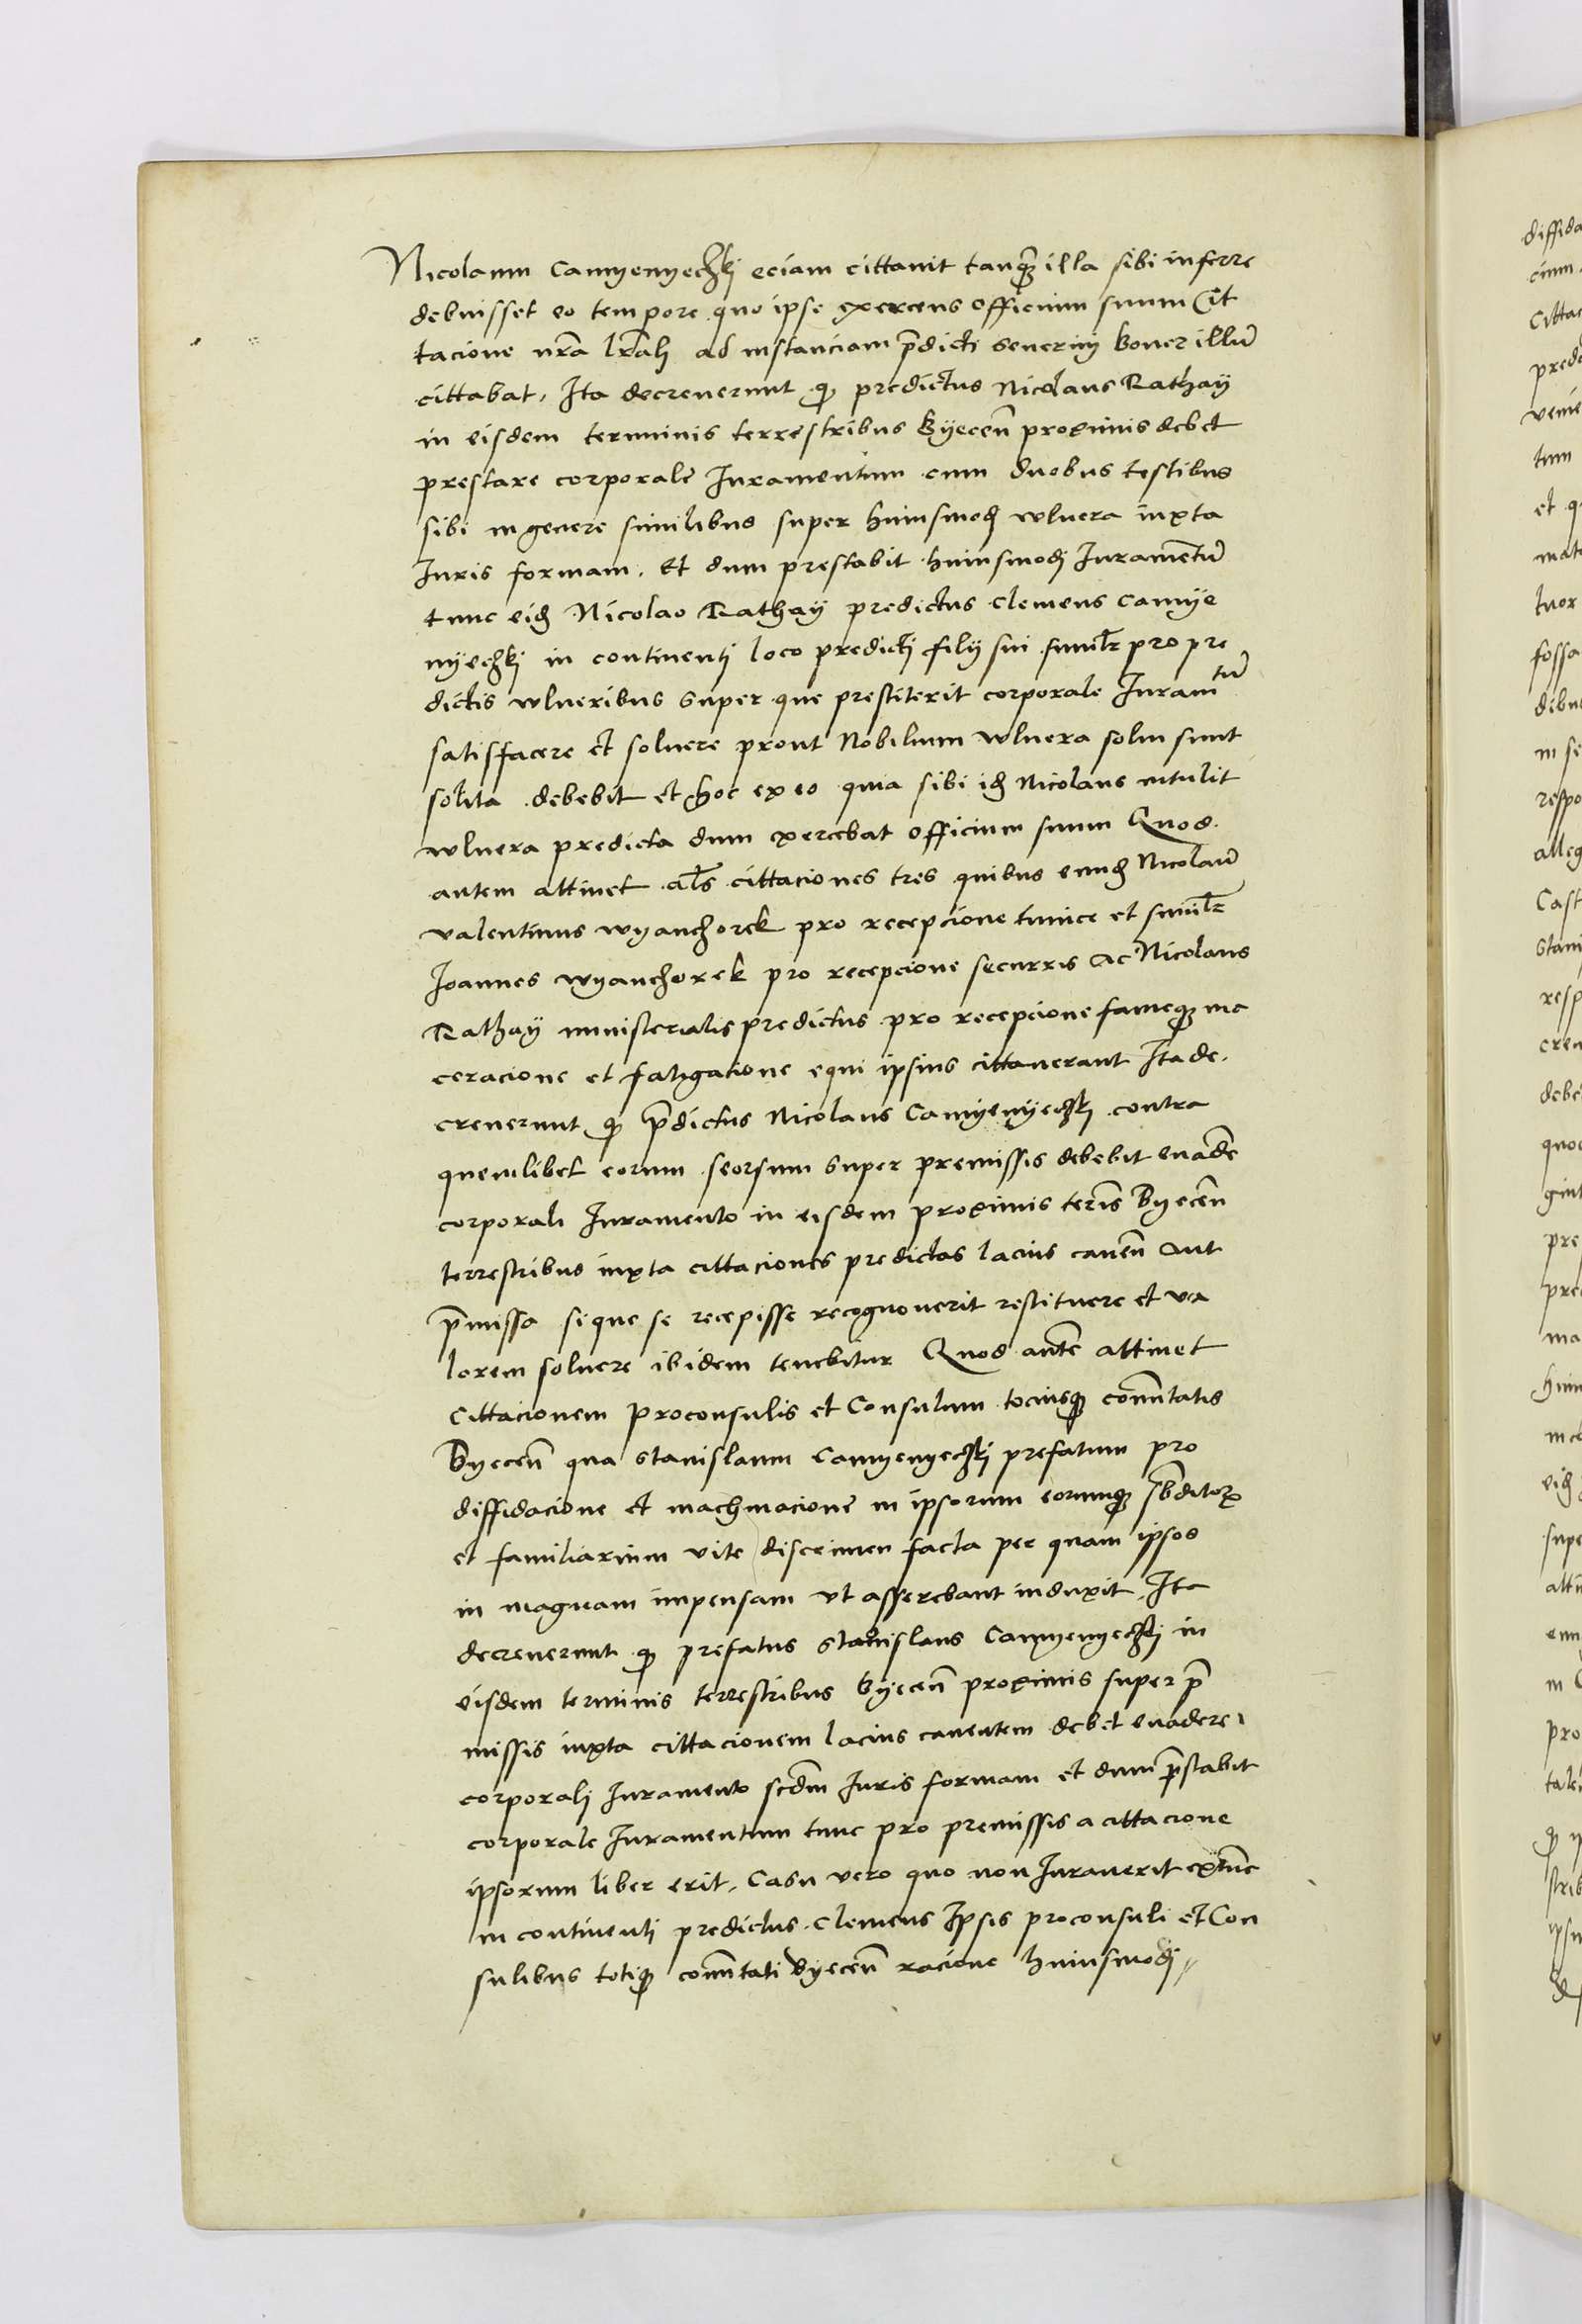 Nicolaum Camyenyeczkj eciam cittauit tanq̃ illa sibi inferre
debuisset eo tempore quo ipse exercens officium suum Cit
tacione nr̃a lr̃alj ad instanciam p̃dicti Seuerinj Boner illũ
cittabat, Ita decreuerunt q̨ predictus Nicolaus Rathaÿ
in eisdem terminis terrestribus Byecen̄ proximis debet
prestare corporale Iuramentum cum duobus testibus
sibi in genere similibus super huiusmodj wlnera iuxta
Iuris formam. Et dum prestabit huiusmodj Iuramentũ
tunc eid̨ Nicolao Rathaÿ predictus Clemens Camÿe
nÿeczkj in continentj loco predictj filij sui similr̃ pro pre
dictis wlneribus super que prestiterit corporale Iuramtũ
satisfacere et soluere prout Nobilium wlnera solui sunt
solita debebit et hoc ex eo quia sibi id̨ Nicolaus intulit
wlnera predicta dum exercebat officium suum Quod
autem attinet al̃s cittaciones tres quibus eund̨ Nicolaũ
Valentinus Wyanczorek pro recepcione tunice et similr̃
Ioannes Wyanczorek pro recepcione securris Ac Nicolaus
Rathaÿ ministerialis predictus pro recepcione fameq̨ ma
ceracione et fatigatione equi ipsius cittauerant Ita de
creuerunt q̨ p̃dictus Nicolaus Camÿenÿeczkj contra
quemlibet eorum seorsum super premissis debebit euad̃e
corporali Iuramento in eisdem proximis ter̃is Byecen̄
terrestribus iuxta cittaciones predictas lacius cauen̄ Aut
p̃missa si que se recepisse recognouerit restituere et va
lorem soluere ibidem tenebitur Quod aut̃e attinet
Cittacionem Proconsulis et Consulum tociusq̨ com̃itatis
Byecen̄ qua Stanislaum Camyenyeczkj prefatum pro
diffidacione et machinacione in ipsorum eorumq̨ sb̃ditoꝝ
et familiarium vite discrimen facta per quam ipsos
in magnam impensam vt asserebant induxit. Ita
decreuerunt q̨ prefatus Stanislaus Camyenyeczkj in
eisdem terminis terrestribus Byecen̄ proximis super p̃
missis iuxta cittacionem lacius cauentem debet euadere
corporalj Iuramento scd̃m Iuris formam et dum p̃stabit
corporale Iuramentum tunc pro premissis a cittacione
ipsorum liber erit, Casu vero quo non Iurauerit extũc
in continenti predictus Clemens Ipsis proconsuli et Con
sulibus totiq̨ com̃itati Byecen̄ racione huiusmodj